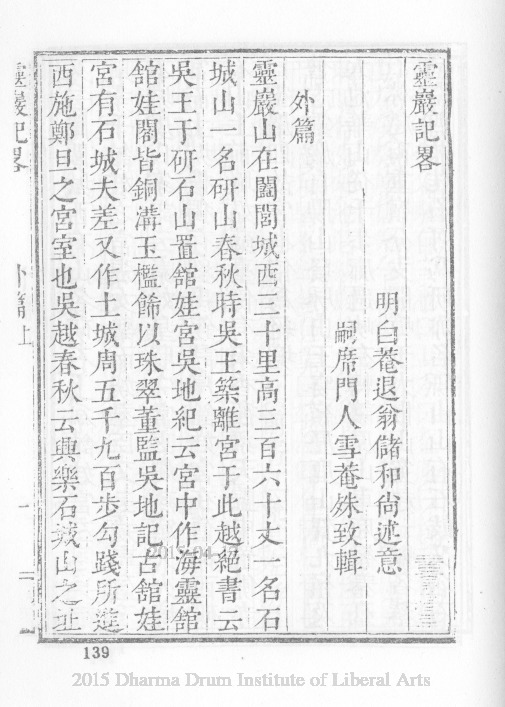 靈巖記畧
明白菴退翁儲和尙述意
嗣席門人雪菴殊致輯
外篇
靈巖山在闔閭城西三十里高三百六十丈一名石
城山一名研山春秋時吳王築離宮于此越絕書云
吳王于研石山置舘娃宮吳地紀云宮中作海靈舘
舘娃閣皆銅溝玉檻飾以珠翠董監吳地記古舘娃
宮有石城夫差又作土城周五千九百步勾踐所進
西施鄭旦之宮室也吳越春秋云興樂石城山之址
靈巖記畧
外篇上
139
2015 Dharma Drum Institute of Liberal Arts